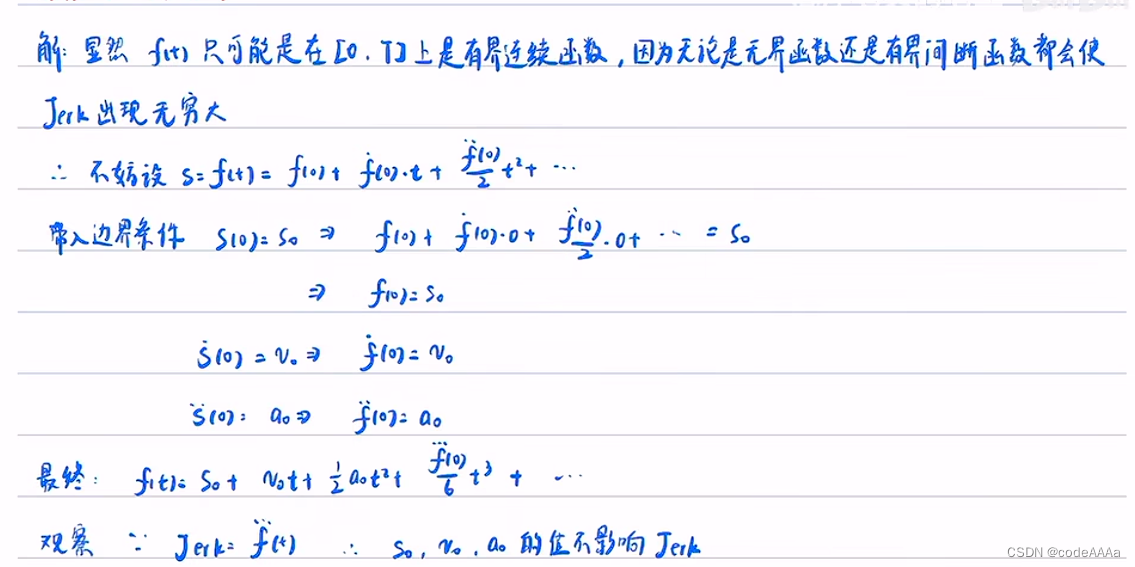 解: 显然 f(t) 只可能是在 [0, T] 上是有界连续函数, 因为无论是无界函数还是有界间断函数都会使
Jerk 出现无穷大
∴ 不妨设 s=f(t)= f(0)+ ḟ(0)·t + f̈(0)/2 t²+ ⋯
带入边界条件 s(0)= s₀ ⇒ f(0)+ ḟ(0)·0+ f̈(0)/2 ·0+ ⋯ = s₀
⇒ f(0)= s₀
ṡ(0) = v₀ ⇒ ḟ(0)= v₀
s̈(0)= a₀ ⇒ f̈(0)= a₀
最终: f(t)= s₀+ v₀t+ ½a₀t²+ f⃛(0)/6 t³ + ⋯
观察 ∵ Jerk= f⃛(t) ∴ s₀, v₀, a₀ 的值不影响 Jerk
CSDN @codeAAAa